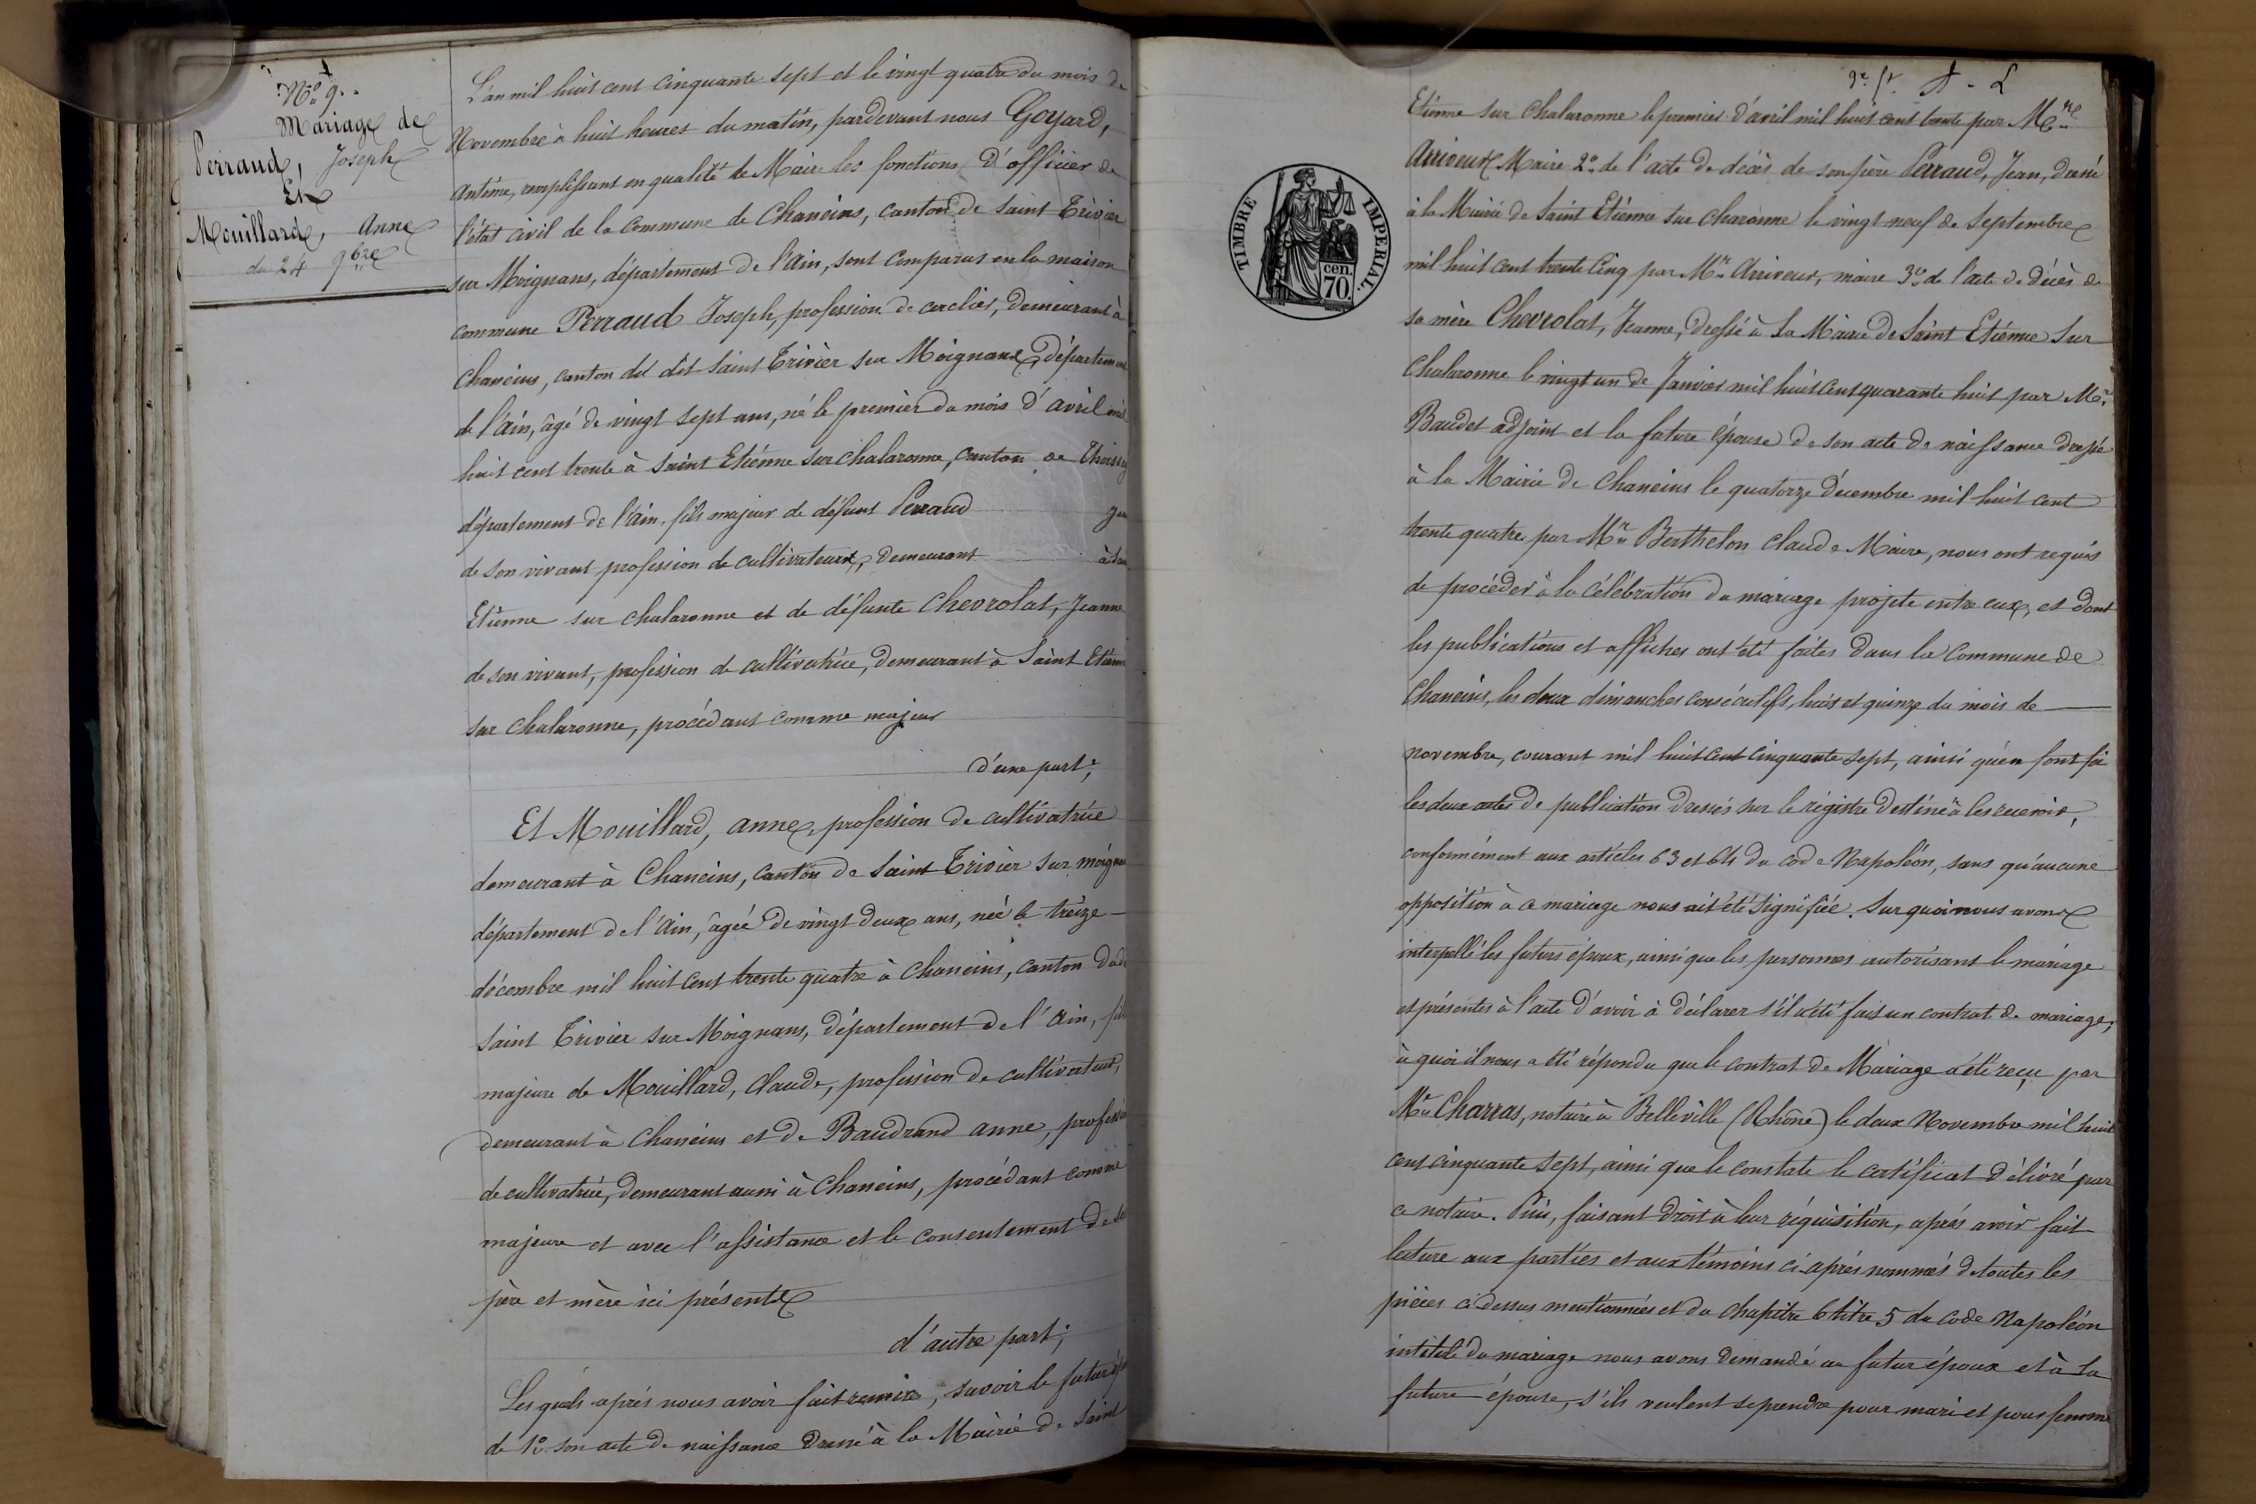 N° 9.
Mariage de
Perraud, Joseph
Et
Mouillard, Anne
du 24 9bre
L'an mil huit cent cinquante sept et le vingt quatre du mois de
Novembre à huit heures du matin, pardevant nous Goyard,
Antême, remplissant en qualité de Maire les fonctions d'officier de
l'état civil de la commune de Chaneins, canton de Saint Trivier
sur Moignans, département de l'Ain, sont comparus en la maison
commune Perraud Joseph, profession de cerclier, demeurant à
Chaneins, canton du dit Saint Trivier sur Moignans, département
de l'Ain, âgé de vingt sept ans, né le premier du mois d'avril mil
huit cent trente à Saint Etiénne sur Chalaronne, canton de Thoissey
département de l'Ain, fils majeur de défunt Perraud
de son vivant profession de cultivateur, demeurant
Etiènne sur chalaronne et de défunte Chevrolat, Jeanne
de son vivant, profession de cultivatrice, demeurant à Saint Etiènne
sur chalaronne, procédant comme majeur
d'une part;
Et Mouillard, anne, profession de cultivatrice
demeurant à Chaneins, canton de Saint Trivier sur moignans
département de l'Ain, âgée de vingt deux ans, née le treize
décembre mil huit cent trente quatre à Chaneins, canton dudit
saint Trivier sur Moignans, département de l'Ain, fille
majeure de Mouillard, Claude, profession de cultivateur,
demeurant à Chaneins et de Baudrand anne, profession
de cultivatrice, demeurant aussi à Chaneins, procédant comme
majeure et avec l'assistance et le consentement de ses
père et mère ici présents
d'autre part;
Les quels après nous avoir fait remise, savoir le futur époux
de 1° son acte de naissance dressé à la Mairie de Saint
TIMBRE IMPERIAL.
cen.
70.
Etiènne sur Chalaronne le premier d'avril mil huit cent trente par Mr
Arriveux Maire 2° de l'acte de décès de son père Perraud, Jean, dressé
à la Mairie de Saint Etienne sur charonne le vingt neuf de Septembre
mil huit cent trente cinq par Mr Arriveux, maire 3° de l'acte de décès de
sa mère Chevrolat, Jeanne, dressé à la Mairie de Saint Etiénne Sur
Chalaronne le vingt un de Janvier mil huit cent quarante huit par Mr
Baudet adjoint et la future épouse de son acte de naissance dressé
à la Mairie de Chaneins le quatorze décembre mil huit cent
trente quatre par Mr Berthelon Claude Maire, nous ont requis
de procéder à la célébration du mariage projeté entre eux, et dont
les publications et affiches ont été faites dans la commune de
Chaneins, les deux dimanches consécutifs, huit et quinze du mois de
novembre, courant mil huit cent cinquante sept, ainsi qu'en font foi
les deux actes de publication dressés sur le régistre destiné à les recevoir,
conformément aux articles 63 et 64 du code Napoléon, sans qu'aucune
opposition à ce mariage nous ait été signifiée. Sur quoi nous avons
interpellé les futurs époux, ainsi que les personnes autorisant le mariage
et présentes à l'acte d'avoir à déclarer s'il a été fait un contrat de mariage;
à quoi il nous a été répondu que le contrat de Mariage a été reçu par
Me Charras, notaire à Belleville (Rhône) le deux Novembre mil huit
cent cinquante sept, ainsi que le constate le certificat délivré par
ce notaire. Puis, faisant droit à leur réquisition, aprés avoir fait
lecture aux parties et aux témoins ci-après nommés de toutes les
pièces ci dessus mentionnées et du chapitre 6 titre 5 du code Napoléon
intitulé du mariage nous avons demandé au futur époux et à la
future épouse, s'ils veulent se prendre pour mari et pour femme